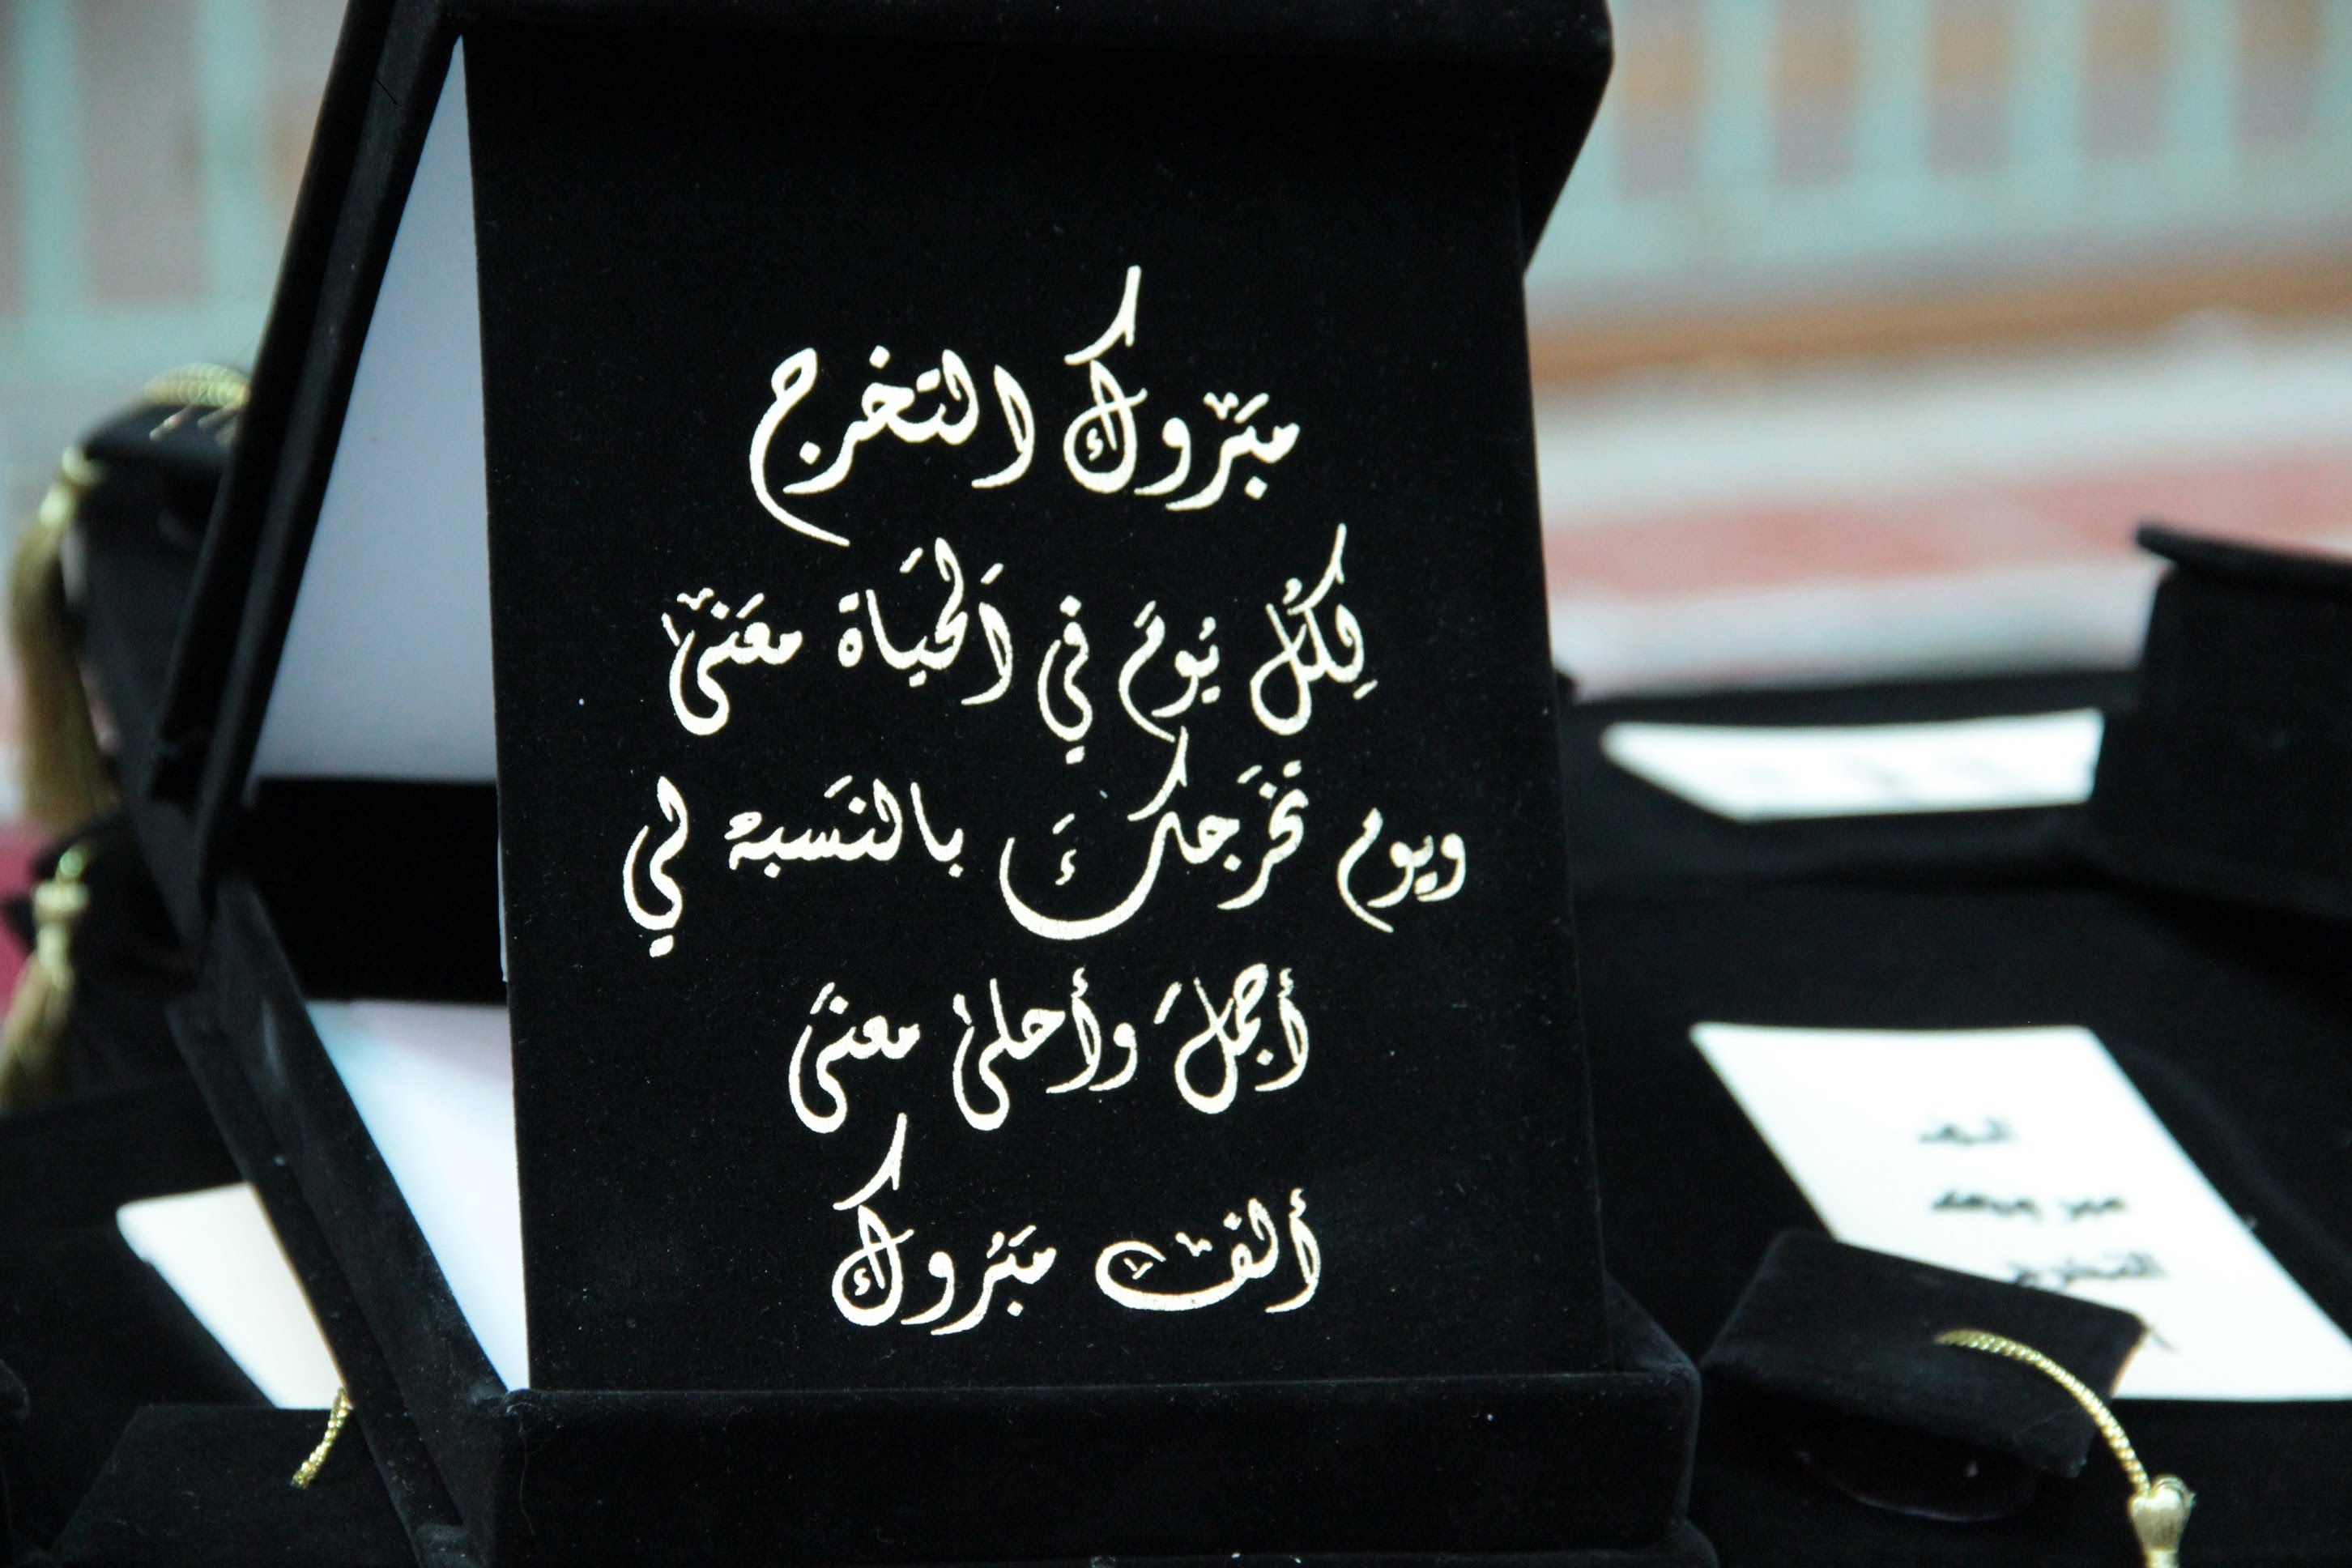 مبروك التخرج
لِكُل يُومَ في اَلحَياة معَنىٰ
ويوم تخَرجكَ بالنَسبه لي
أجملَ وأحلىٰ معنىَ
ألف مَبَرُوك
الف
مبروك
التخرج